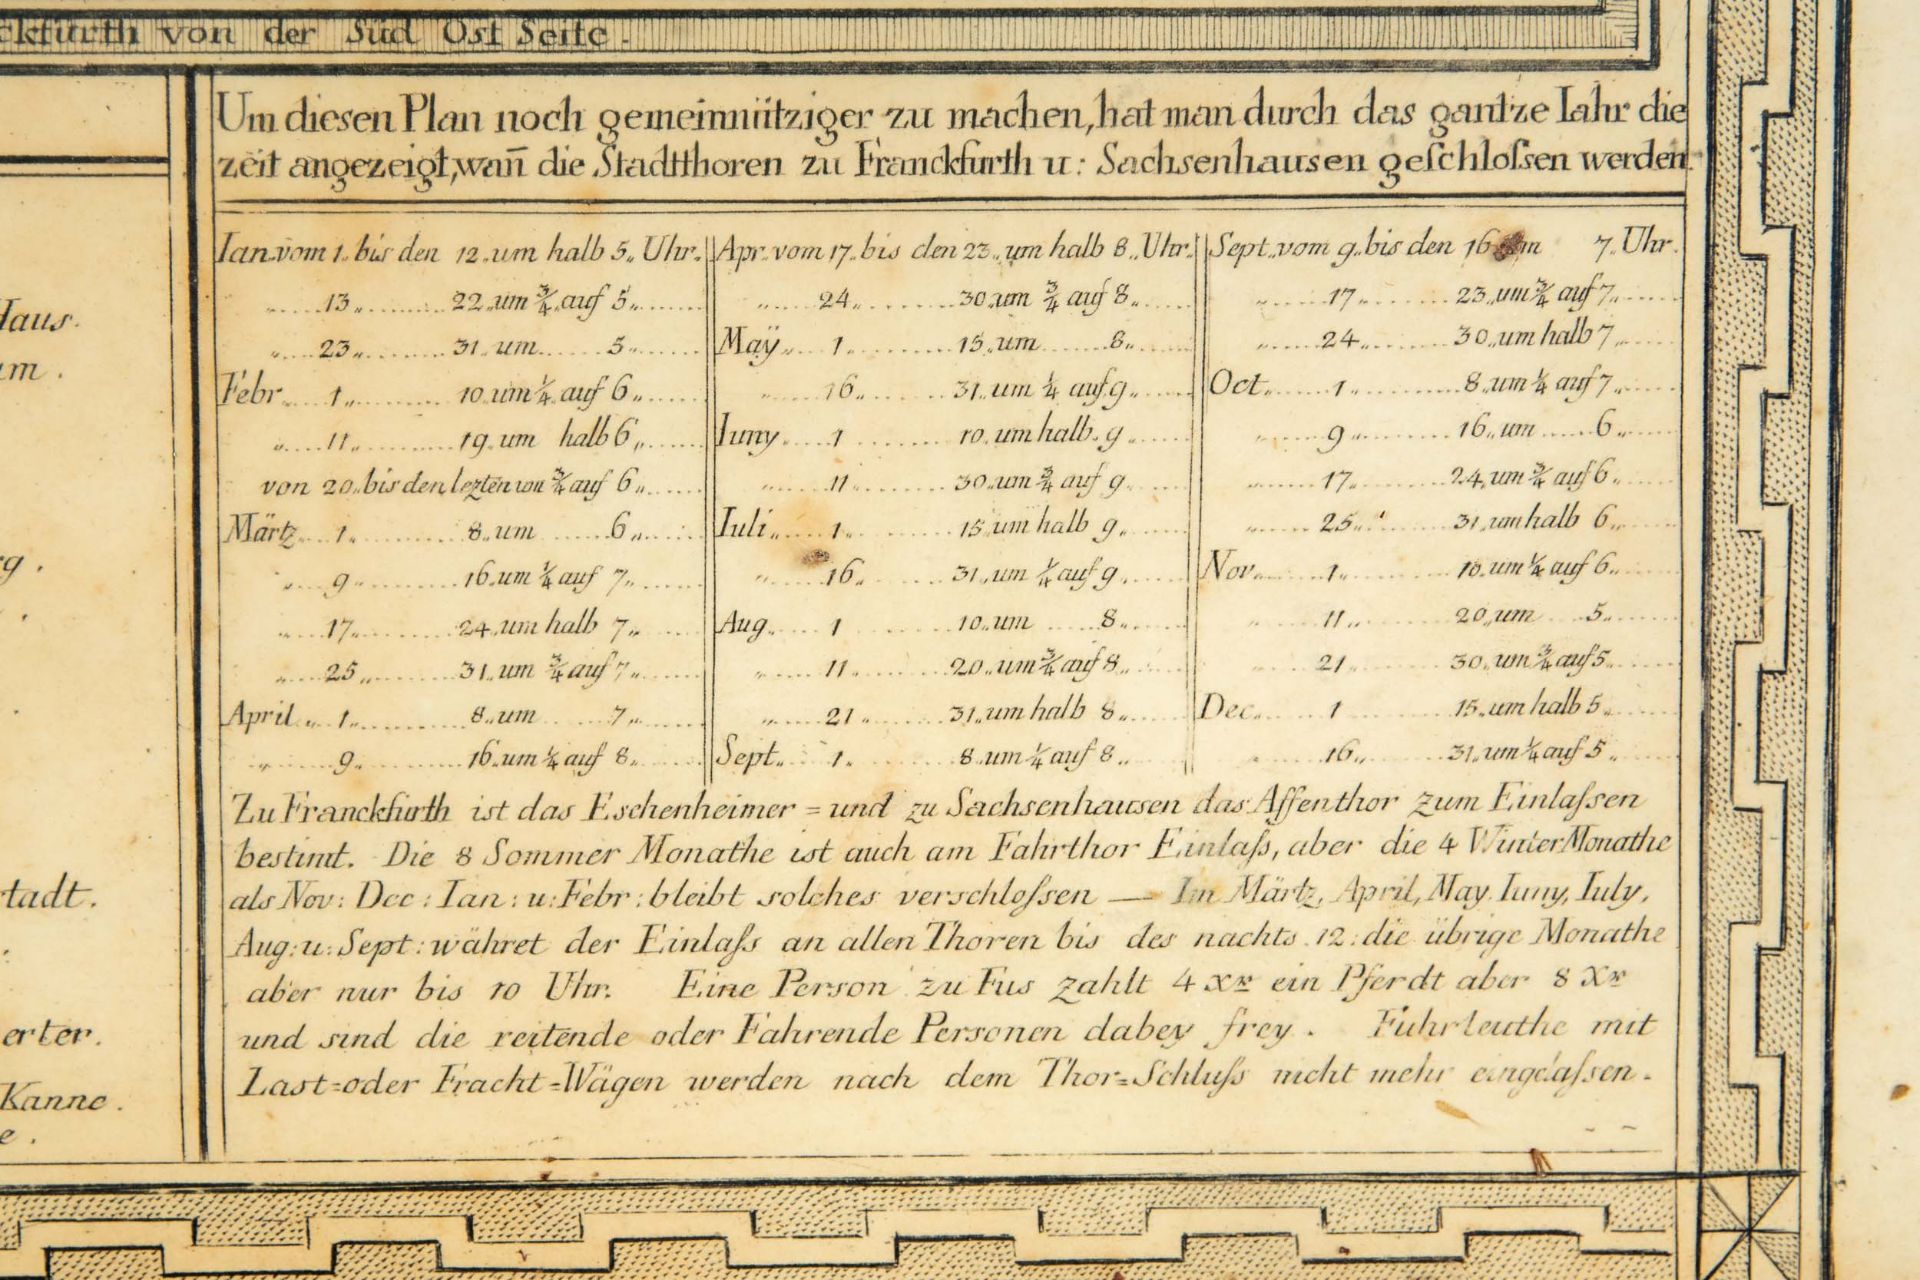 ckfurth von der Süd Ost Seite.
Um diesen Plan noch gemeinnützziger zu machen, hat man durch das gantze Iahr die
zeit angezeigt, wañ die Stadtthoren zu Franckfurth u: Sachsenhausen geschlossen werden.
Ian. vom 1. bis den 12. um halb 5. Uhr.
„ 13. 22. um ¾ auf 5.
„ 23. 31. um 5.
Febr. 1. 10. um ¼ auf 6.
„ 11. 19. um halb 6.
von 20. bis den lezten um ¾ auf 6.
Märtz 1. 8. um 6.
„ 9. 16. um ¼ auf 7.
„ 17. 24. um halb 7.
„ 25. 31. um ¾ auf 7.
April 1. 8. um 7.
„ 9. 16. um ¼ auf 8.
Apr. vom 17. bis den 23. um halb 8. Uhr.
„ 24. 30. um ¾ auf 8.
Maÿ 1. 15. um 8.
„ 16. 31. um ¼ auf 9.
Iuny 1 10. um halb 9.
„ 11 30. um ¾ auf 9.
Iuli 1. 15. um halb 9.
„ 16. 31. um ¼ auf 9.
Aug. 1 10. um 8.
„ 11 20. um ¾ auf 8.
„ 21. 31. um halb 8.
Sept. 1. 8. um ¼ auf 8.
Sept. vom 9. bis den 16 7. Uhr.
„ 17. 23. um ¾ auf 7.
„ 24. 30. um halb 7.
Oct. 1. 8. um ¼ auf 7.
„ 9 16. um 6.
„ 17. 24. um ¾ auf 6.
„ 25. 31. um halb 6.
Nov. 1. 10. um ¼ auf 6.
„ 11. 20. um 5.
„ 21 30. um ¾ auf 5.
Dec. 1 15. um halb 5.
„ 16. 31. um ¼ auf 5.
Zu Franckfurth ist das Eschenheimer = und zu Sachsenhausen das Affenthor zum Einlassen
bestimt. Die 8 Sommer Monathe ist auch am Fahrthor Einlass, aber die 4 Winter Monathe
als Nov: Dec: Ian: u: Febr: bleibt solches verschlossen — Im Märtz, April, May Iuny, Iuly,
Aug: u: Sept: währet der Einlass an allen Thoren bis des nachts 12. die übrige Monathe
aber nur bis 10 Uhr. Eine Person zu Fus zahlt 4 xr ein Pferdt aber 8 Xr
und sind die reitende oder Fahrende Personen dabey frey. Fuhrleuthe mit
Last=oder Fracht=Wägen werden nach dem Thor=Schluss nicht mehr eingelassen.
Haus.
um.
rg.
stadt.
erter.
Kanne.
e.